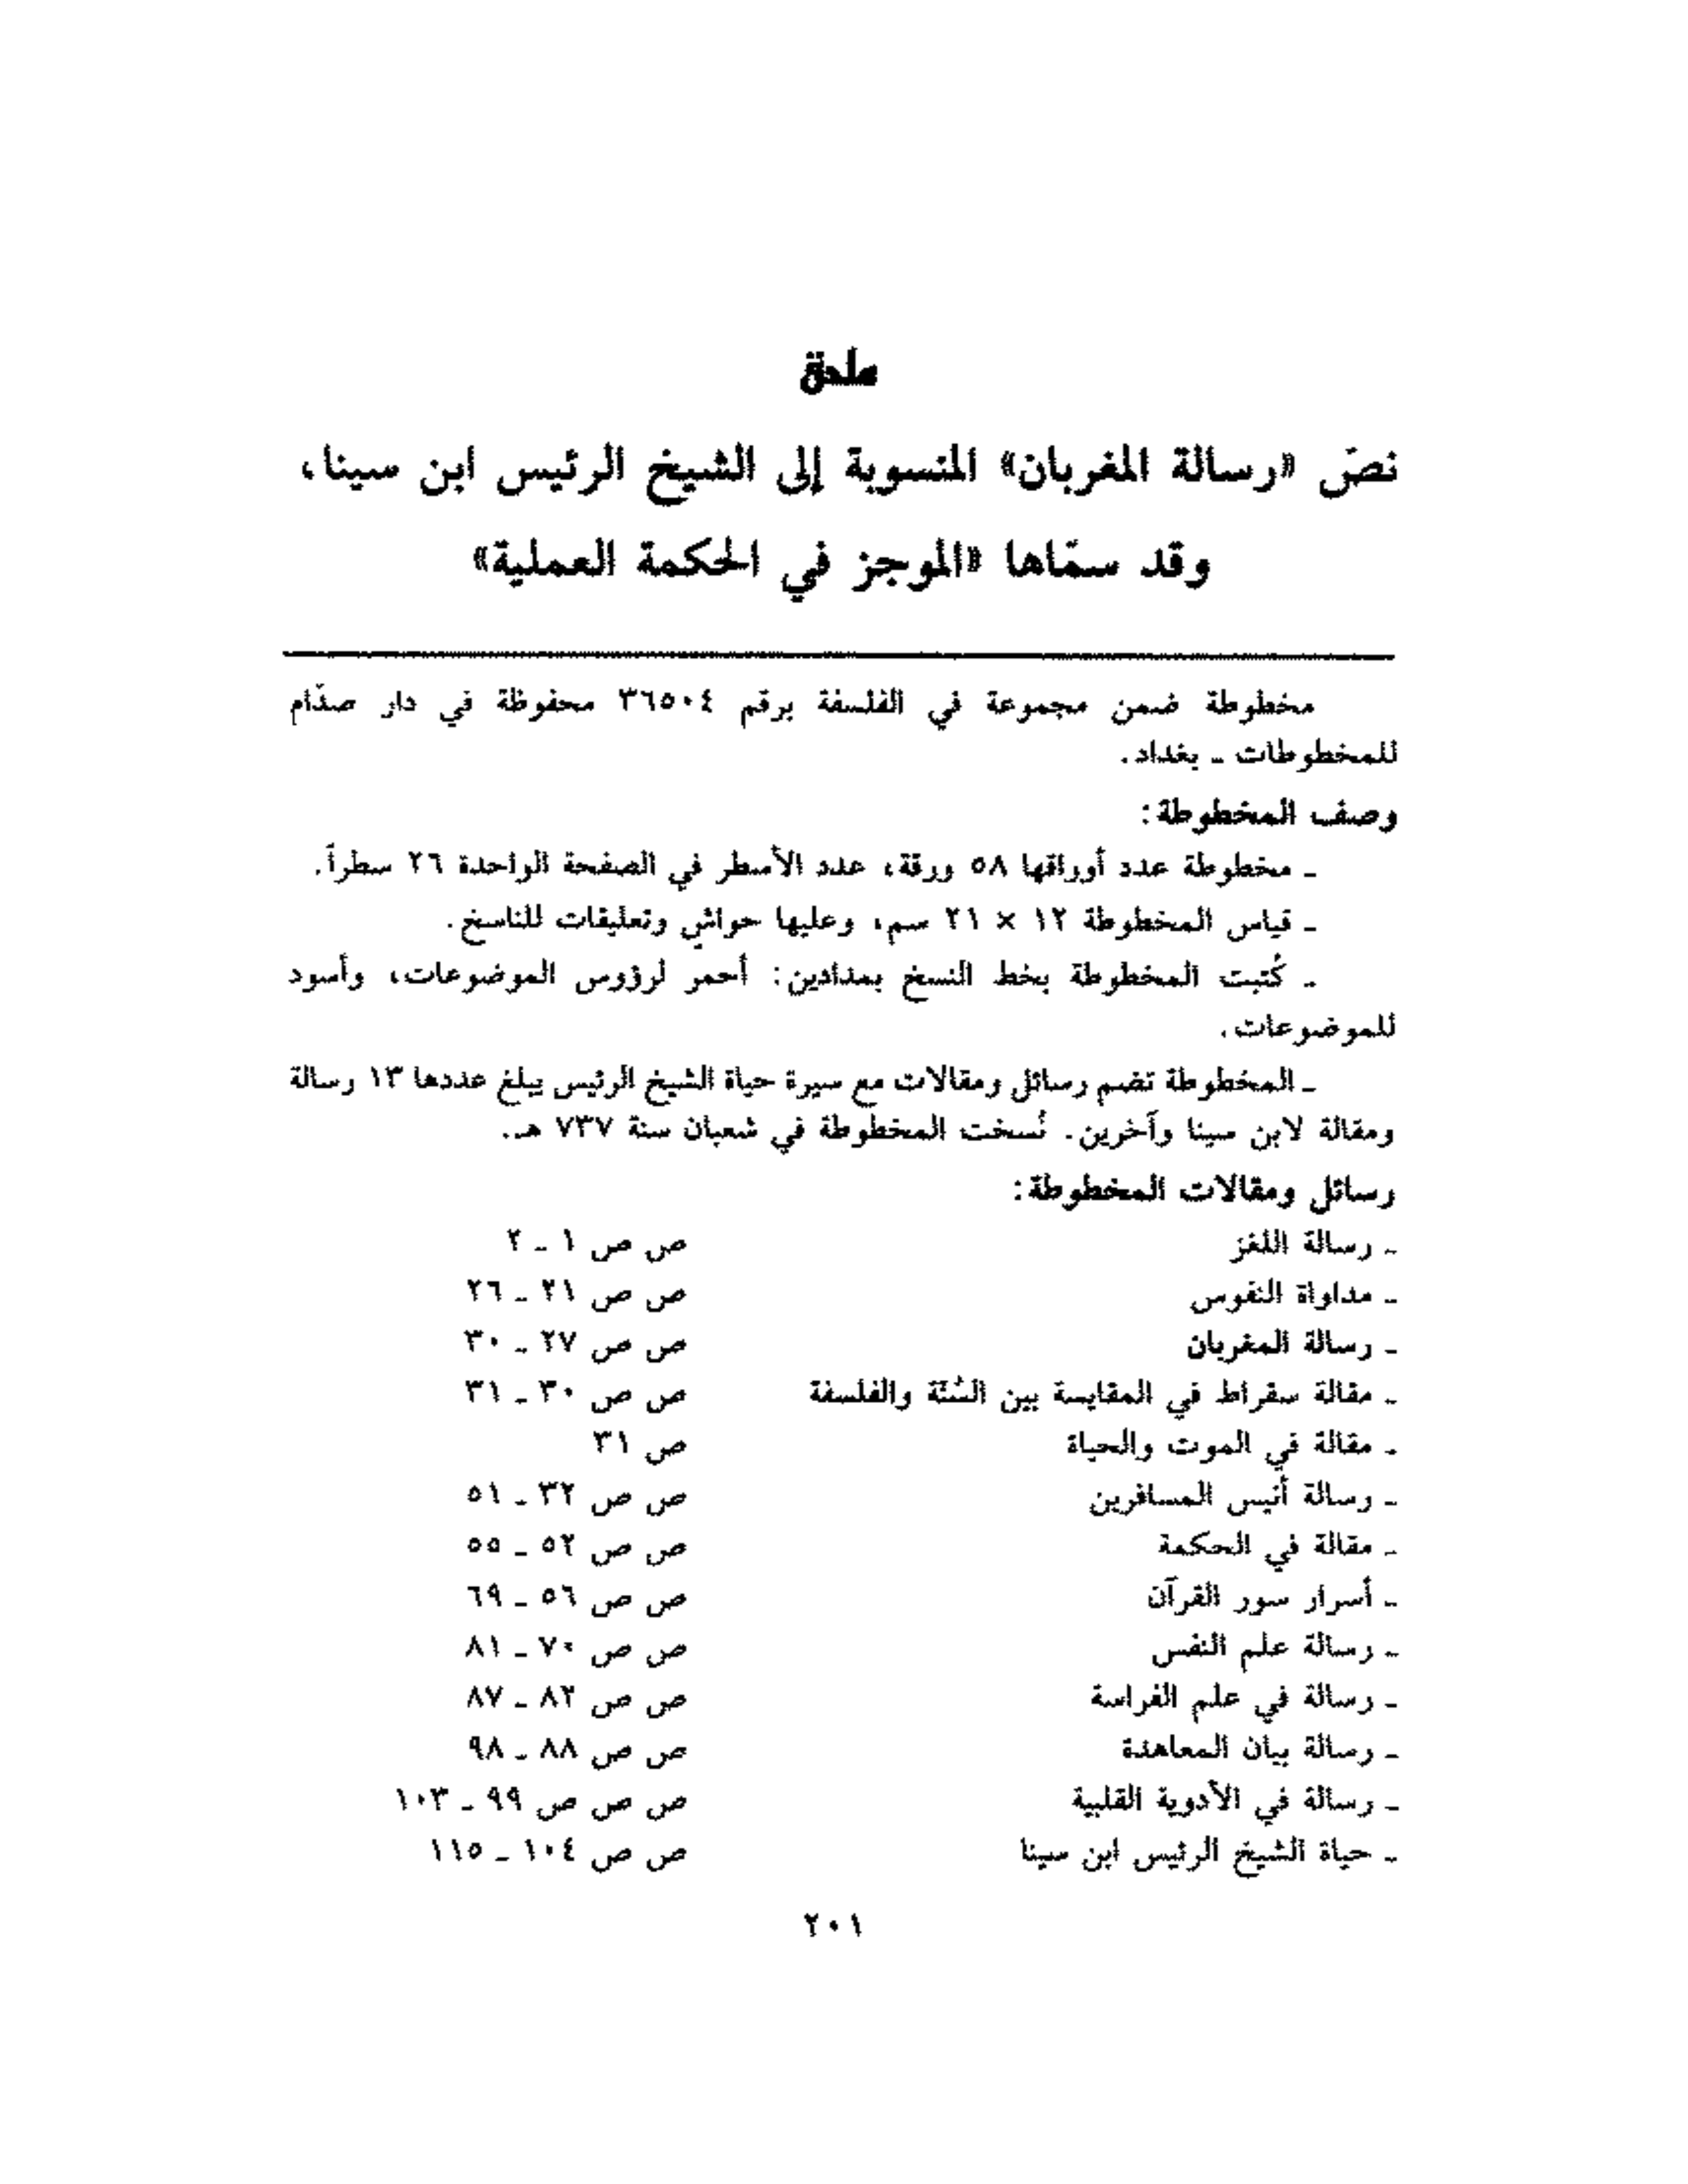 ملحق
نصّ «رسالة المغربان» المنسوبة إلى الشيخ الرئيس ابن سينا،
وقد سمّاها «الموجز في الحكمة العملية»
مخطوطة ضمن مجموعة في الفلسفة برقم ٣٦٥٠٤ محفوظة في دار صدّام
للمخطوطات - بغداد.
وصف المخطوطة:
- مخطوطة عدد أوراقها ٥٨ ورقة، عدد الأسطر في الصفحة الواحدة ٢٦ سطراً.
- قياس المخطوطة ١٢ × ٢١ سم، وعليها حواشٍ وتعليقات للناسخ.
- كُتبت المخطوطة بخط النسخ بمدادين: أحمر لرؤوس الموضوعات، وأسود
للموضوعات.
- المخطوطة تضم رسائل ومقالات مع سيرة حياة الشيخ الرئيس يبلغ عددها ١٣ رسالة
ومقالة لابن سينا وآخرين. نُسخت المخطوطة في شعبان سنة ٧٣٧ هـ.
رسائل ومقالات المخطوطة:
- رسالة اللغز ص ص ١ - ٢
- مداواة النفوس ص ص ٢١ - ٢٦
- رسالة المغربان ص ص ٢٧ - ٣٠
- مقالة سقراط في المقايسة بين السُّنّة والفلسفة ص ص ٣٠ - ٣١
- مقالة في الموت والحياة ص ٣١
- رسالة أنيس المسافرين ص ص ٣٢ - ٥١
- مقالة في الحكمة ص ص ٥٢ - ٥٥
- أسرار سور القرآن ص ص ٥٦ - ٦٩
- رسالة علم النفس ص ص ٧٠ - ٨١
- رسالة في علم الفراسة ص ص ٨٢ - ٨٧
- رسالة بيان المعاهدة ص ص ٨٨ - ٩٨
- رسالة في الأدوية القلبية ص ص ص ٩٩ - ١٠٣
- حياة الشيخ الرئيس ابن سينا ص ص ١٠٤ - ١١٥
٢٠١